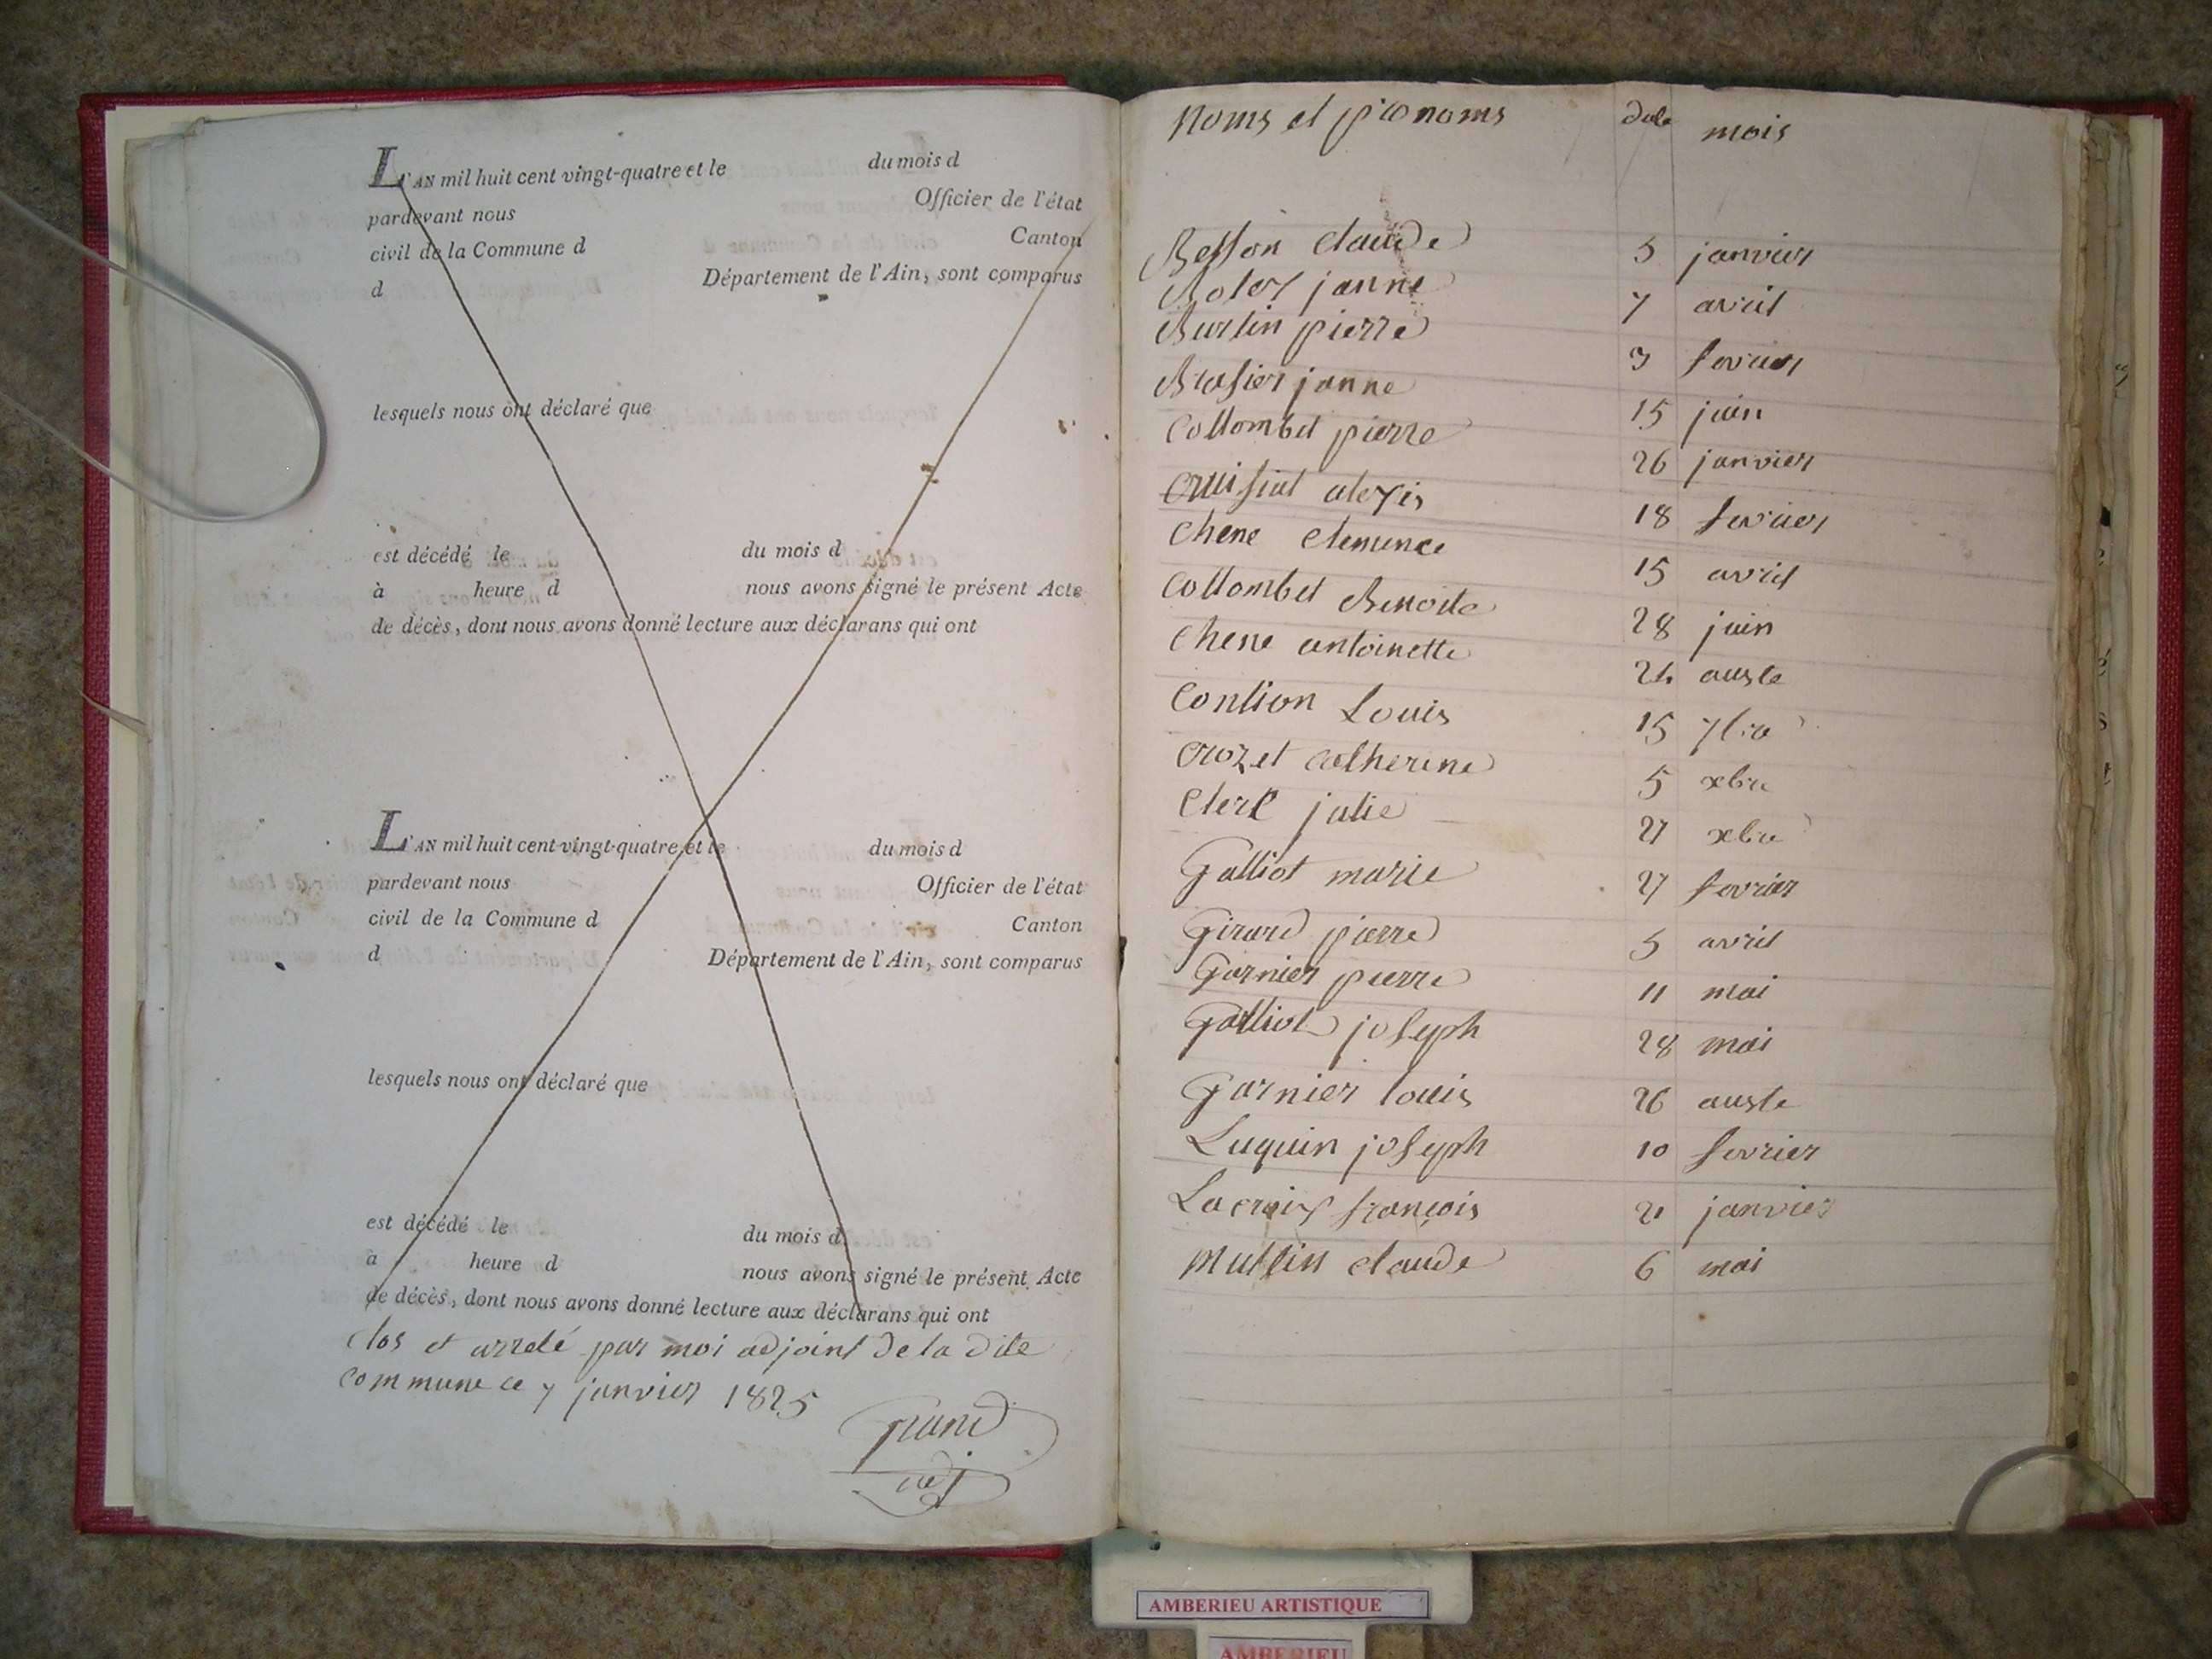 L'AN mil huit cent vingt-quatre et le du mois d
pardevant nous Officier de l'état
civil de la Commune d Canton
d Département de l'Ain, sont comparus
lesquels nous ont déclaré que
est décédé le du mois d
à heure d nous avons signé le présent Acte
de décès, dont nous avons donné lecture aux déclarans qui ont
L'AN mil huit cent vingt-quatre et le du mois d
pardevant nous Officier de l'état
civil de la Commune d Canton
d Département de l'Ain, sont comparus
lesquels nous ont déclaré que
est décédé le du mois d
à heure d nous avons signé le présent Acte
de décès, dont nous avons donné lecture aux déclarans qui ont
clos et arreté par moi adjoint de la dite
commune ce 7 janvier 1825
grand
adj
noms et prenoms date mois
Besson claude 5 janvier
janne 7 avril
Burtin pierre 3 fevrier
Brasier janne 15 juin
Collombet pierre 26 janvier
alexis 18 fevrier
Chene clemence 15 avril
Collombet Benoite 28 juin
Chene antoinette 24 auste
Contion Louis 15 7bre
Crozet catherine 5 xbre
Clerc julie 27 xbre
Galliot marie 27 fevrier
Girard pierre 5 avril
Garnier pierre 11 mai
Galliot joseph 28 mai
Garnier louis 26 auste
Luquin joseph 10 fevrier
Lacroix françois 21 janvier
claude 6 mai
AMBERIEU ARTISTIQUE
AMBERIEU